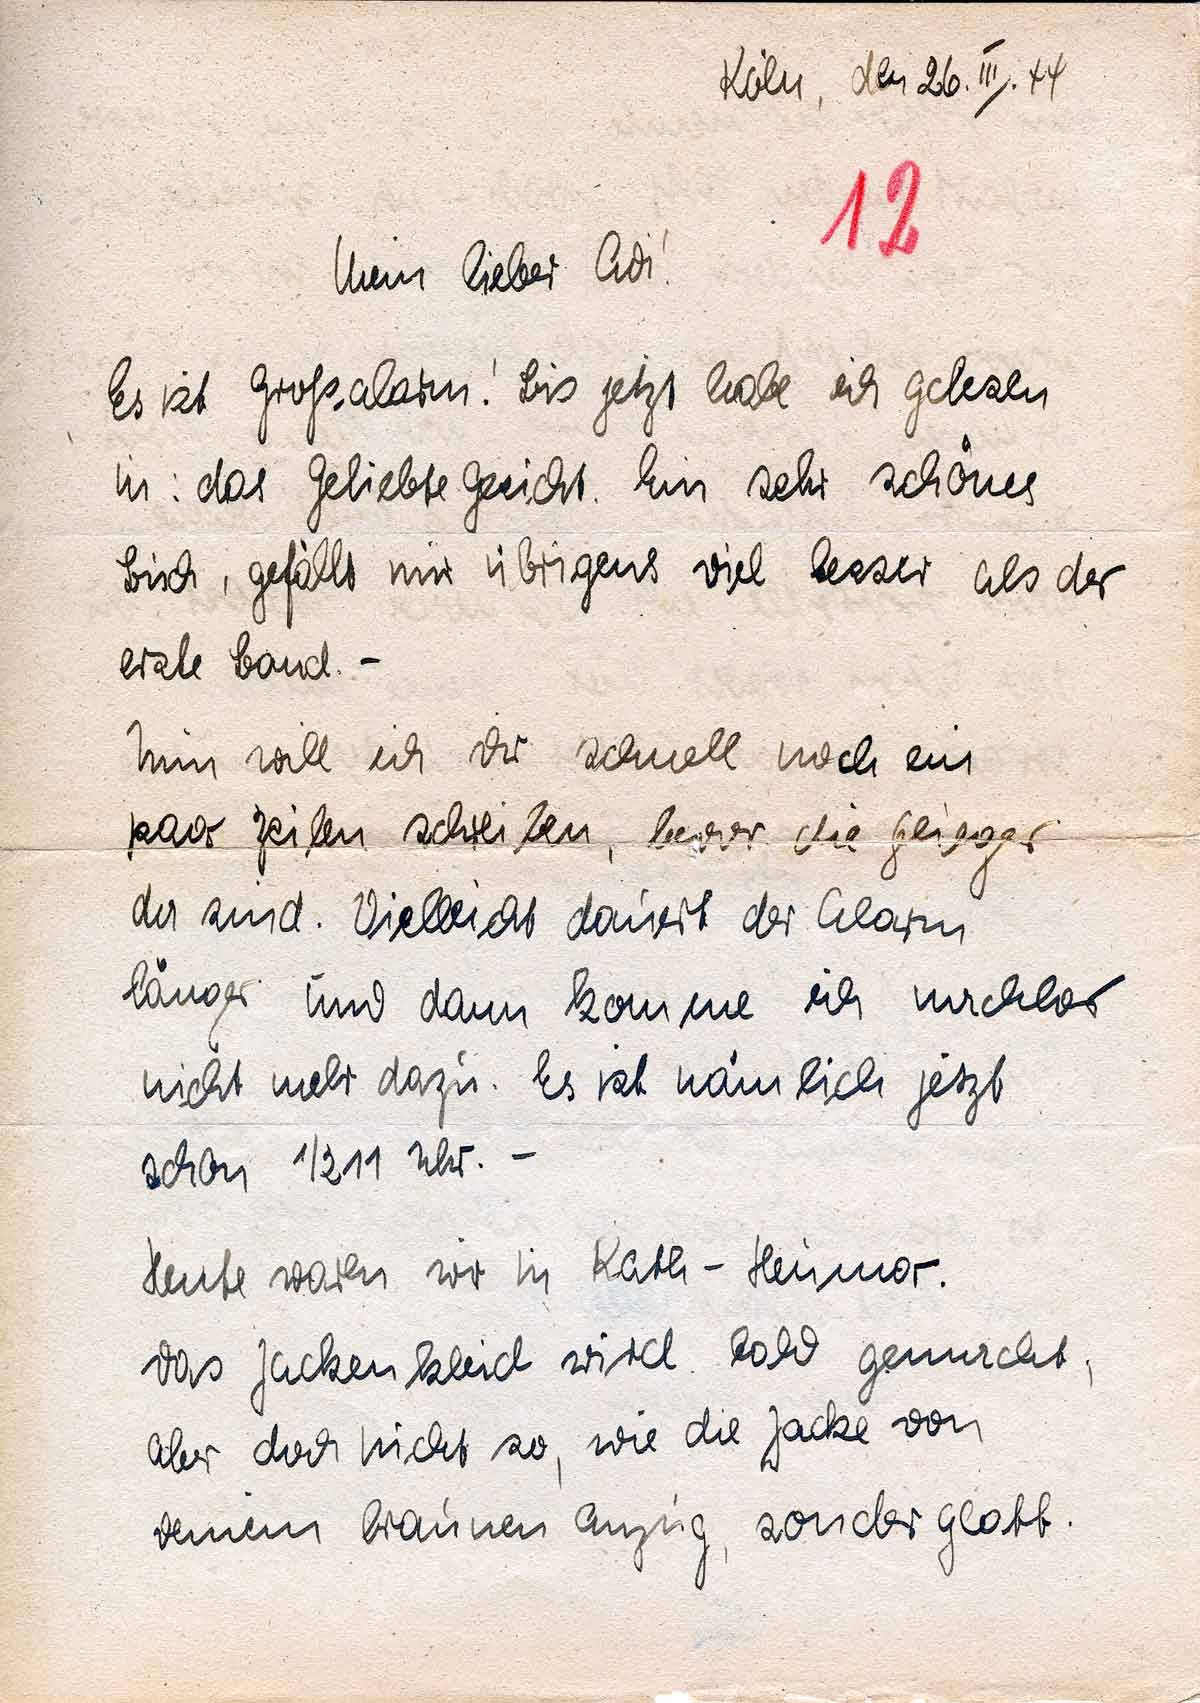 Köln, den 26. III. 44
12
Mein lieber Adi!
Es ist Großalarm! Bis jetzt habe ich gelesen
in: das geliebte Gesicht. Ein sehr schönes
Buch, gefällt mir übrigens viel besser als der
erste Band. –
Nun will ich dir schnell noch ein
paar Zeilen schreiben, bevor die Flieger
da sind. Vielleicht dauert der Alarm
länger und dann komme ich nachher
nicht mehr dazu. Es ist nämlich jetzt
schon 1/2 11 Uhr. –
Heute waren wir in Rath-Heumar.
Das Jackenkleid wird bald gemacht,
aber doch nicht so, wie die Jacke von
deinem braunen Anzug, sonder glatt.